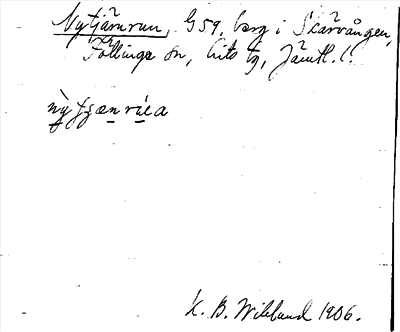 Nytjärnrun, G59, berg i Skärvången,
Föllinge sn, Lits tg, Jämtl. l.
K. B. Wiklund 1906.